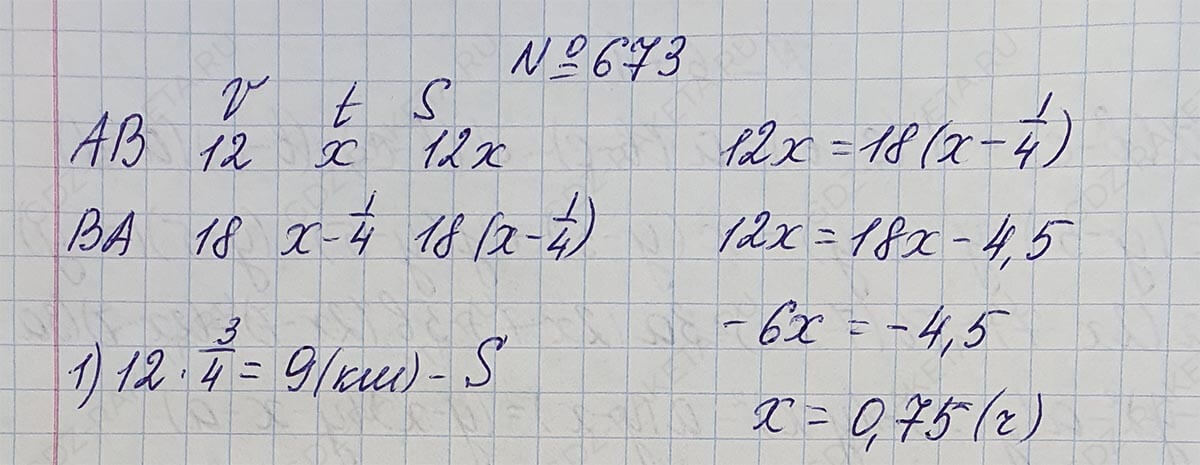 №673
V t S
AB 12 x 12x
BA 18 x-1/4 18(x-1/4)
1) 12·3/4=9(км)-S
12x=18(x-1/4)
12x=18x-4,5
-6x=-4,5
x=0,75(ч)